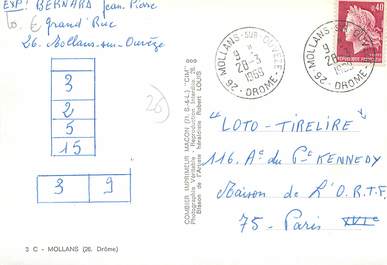 EXP: BERNARD Jean-Pierre
Grand' Rue
26. Mollans-sur-Ouvèze
3
2
5
15
3 9
26
2 C - MOLLANS (26. Drôme)
COMBIER IMPRIMEUR MACON (71. S.-&-L.) "CIM"
Photographie Véritable - Reproduction Interdite
Blason de l'Artiste héraldiste Robert LOUIS
26 - MOLLANS-SUR-OUVEZE - DROME
9 H
28-3
1969
26 - MOLLANS-SUR-OUVEZE - DROME
9 H
28-3
1969
0,40
"LOTO-TIRELIRE"
116. Ae du Pt KENNEDY
Maison de L'O.R.T.F.
75 - Paris XVIe